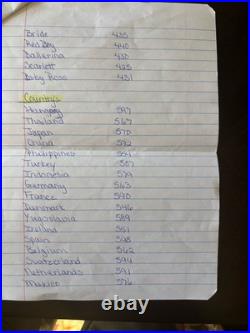 Bride 435
Red Boy 440
Ballerina 430
Scarlett 425
Baby Rose 431
Country's
Hungary 597
Thailand 567
Japan 570
China 572
Philippines 554
Turkey 587
Indonesia 579
Germany 563
France 590
Denmark 546
Yugoslavia 589
Ireland 551
Spain 598
Belgium 562
Switzerland 594
Netherlands 591
Mexico 576